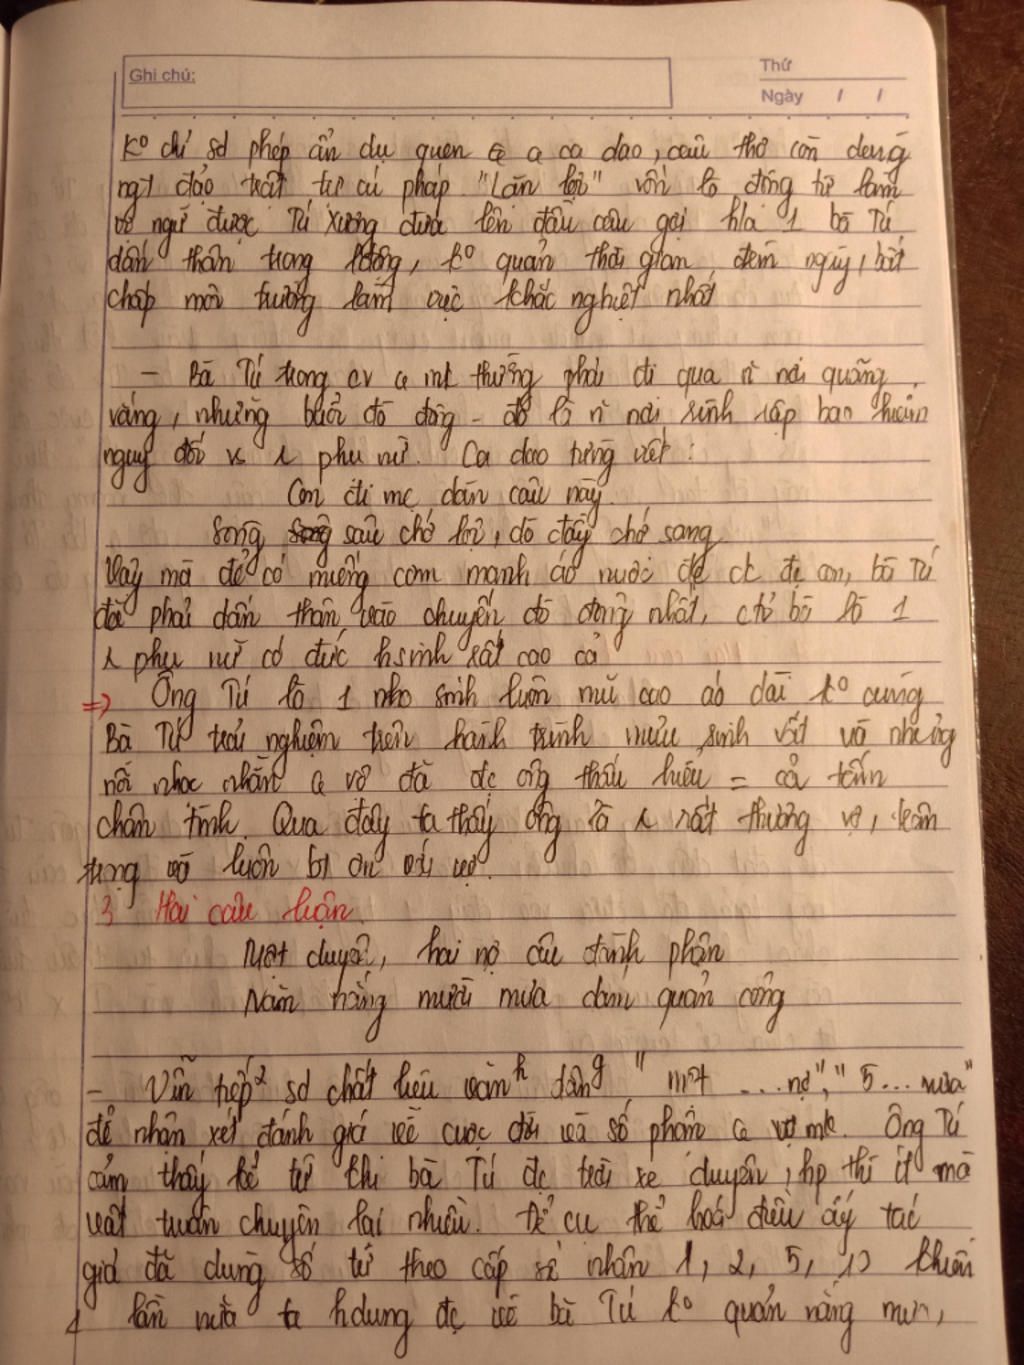 Ghi chú:
Thứ
Ngày / /
K° chỉ sd phép ẩn dụ quen a ca dao, câu thơ còn dùng
ngt đảo trật tự cú pháp "Lặn lội" vốn là động từ làm
vị ngữ được Tú Xương đưa lên đầu câu gợi h/a 1 bà Tú
dấn thân trong lđộng, k° quản thời gian đêm ngày, bất
chấp môi trường làm việc khắc nghiệt nhất
- Bà Tú trong cv q mk thường phải đi qua n nơi quãng
vắng, những buổi đò đông - đó là n nơi sinh sập bao hiểm
nguy đối vs phụ nữ. Ca dao từng viết:
Con đi mẹ dặn câu này
Sông sâu chớ lội, đò đầy chớ sang
Vậy mà để có miếng cơm manh áo nước để ck để con, bà Tú
đã phải dấn thân vào chuyến đò đông nhất, chứ bà là 1
phụ nữ có đức hsinh rất cao cả
=> Ông Tú là 1 nho sinh luôn mũ cao áo dài k° cùng
Bà Tú trải nghiệm trên hành trình mưu sinh vất vả nhưng
nỗi nhọc nhằn q vợ đã đc ông thấu hiểu = cả tấm
chân tình. Qua đây ta thấy ông là rất thương vợ, trân
trọng và luôn bt ơn với vợ.
3 Hai câu luận
Một duyên, hai nợ âu đành phận
Năm nắng mười mưa dám quản công
- Vẫn tiếp² sd chất liệu văn h dân g "một ... nợ", "5 ... mưa"
để nhận xét đánh giá về cuộc đời và số phận q vợ mk. Ông Tú
cảm thấy kể từ khi bà Tú đc trời xe duyên, hp thì ít mà
vất truân chuyên lại nhiều. Để cụ thể hoá điều ấy tác
giả đã dùng số từ theo cấp số nhân 1, 2, 5, 10 khiến
1 lần nữa ta hdung đc về bà Tú k° quản nắng mưa,